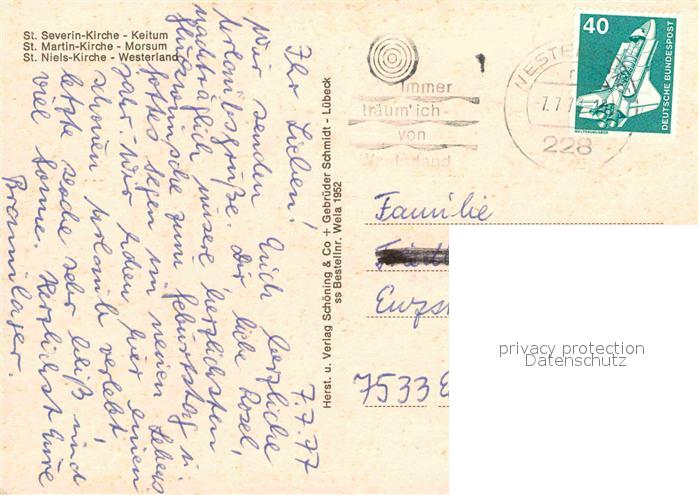 St. Severin-Kirche - Keitum
St. Martin-Kirche - Morsum
St. Niels-Kirche - Westerland
7.7.77
Ihr Lieben!
Wir senden Euch herzliche
Urlaubsgrüße. Dir liebe Rosel,
nachträglich unsere herzlichsten
Glückwünsche zum Geburtstag u.
Gottes Segen im neuen Lebens
jahr. Wir haben hier einen
schönen Urlaub verlebt
letzte Woche sehr heiß und
viel Sonne. Herzlichst Eure
Herst. u. Verlag Schöning & Co + Gebrüder Schmidt - Lübeck
ss Bestellnr. Wela 1952
Immer
träum' ich
von
Westerland
WESTE
228
40
DEUTSCHE BUNDESPOST
WELTRAUMLABOR
Familie
7533
privacy protection
Datenschutz